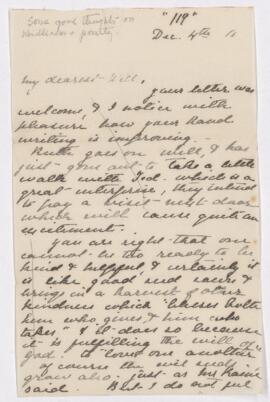 Some good thoughts on
kindliness & poverty.
"119"
Dec. 4th
My dearest Will,
your letter was
welcome, & I notice with
pleasure how your hand
writing is improving.
Ruth goes on well, & has
just gone out to take a little
walk with Ted. which is a
great enterprise, they intend
to pay a visit next door
which will cause quite an
excitement.
You are right that one
cannot be too ready to be
kind & helpful, & certainly it
is like good seed sown &
brings in a harvest of other
kindness which "blesses both
him who gives & him who
takes" & it does so because
it is fulfilling the will of
God. to "love one another"
of course the evil seed
grows also, just as Mr
said. But I do not feel